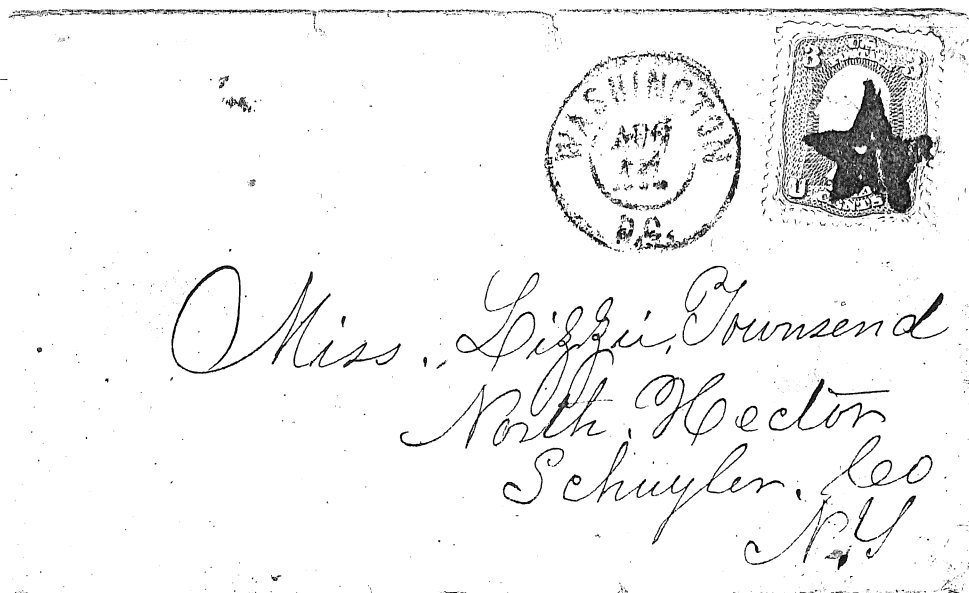 WASHINGTON
AUG
D.C.
3 U.S. 3
U
CENTS
Miss. Lizzie Townsend
North. Hector
Schuyler. Co
N.Y